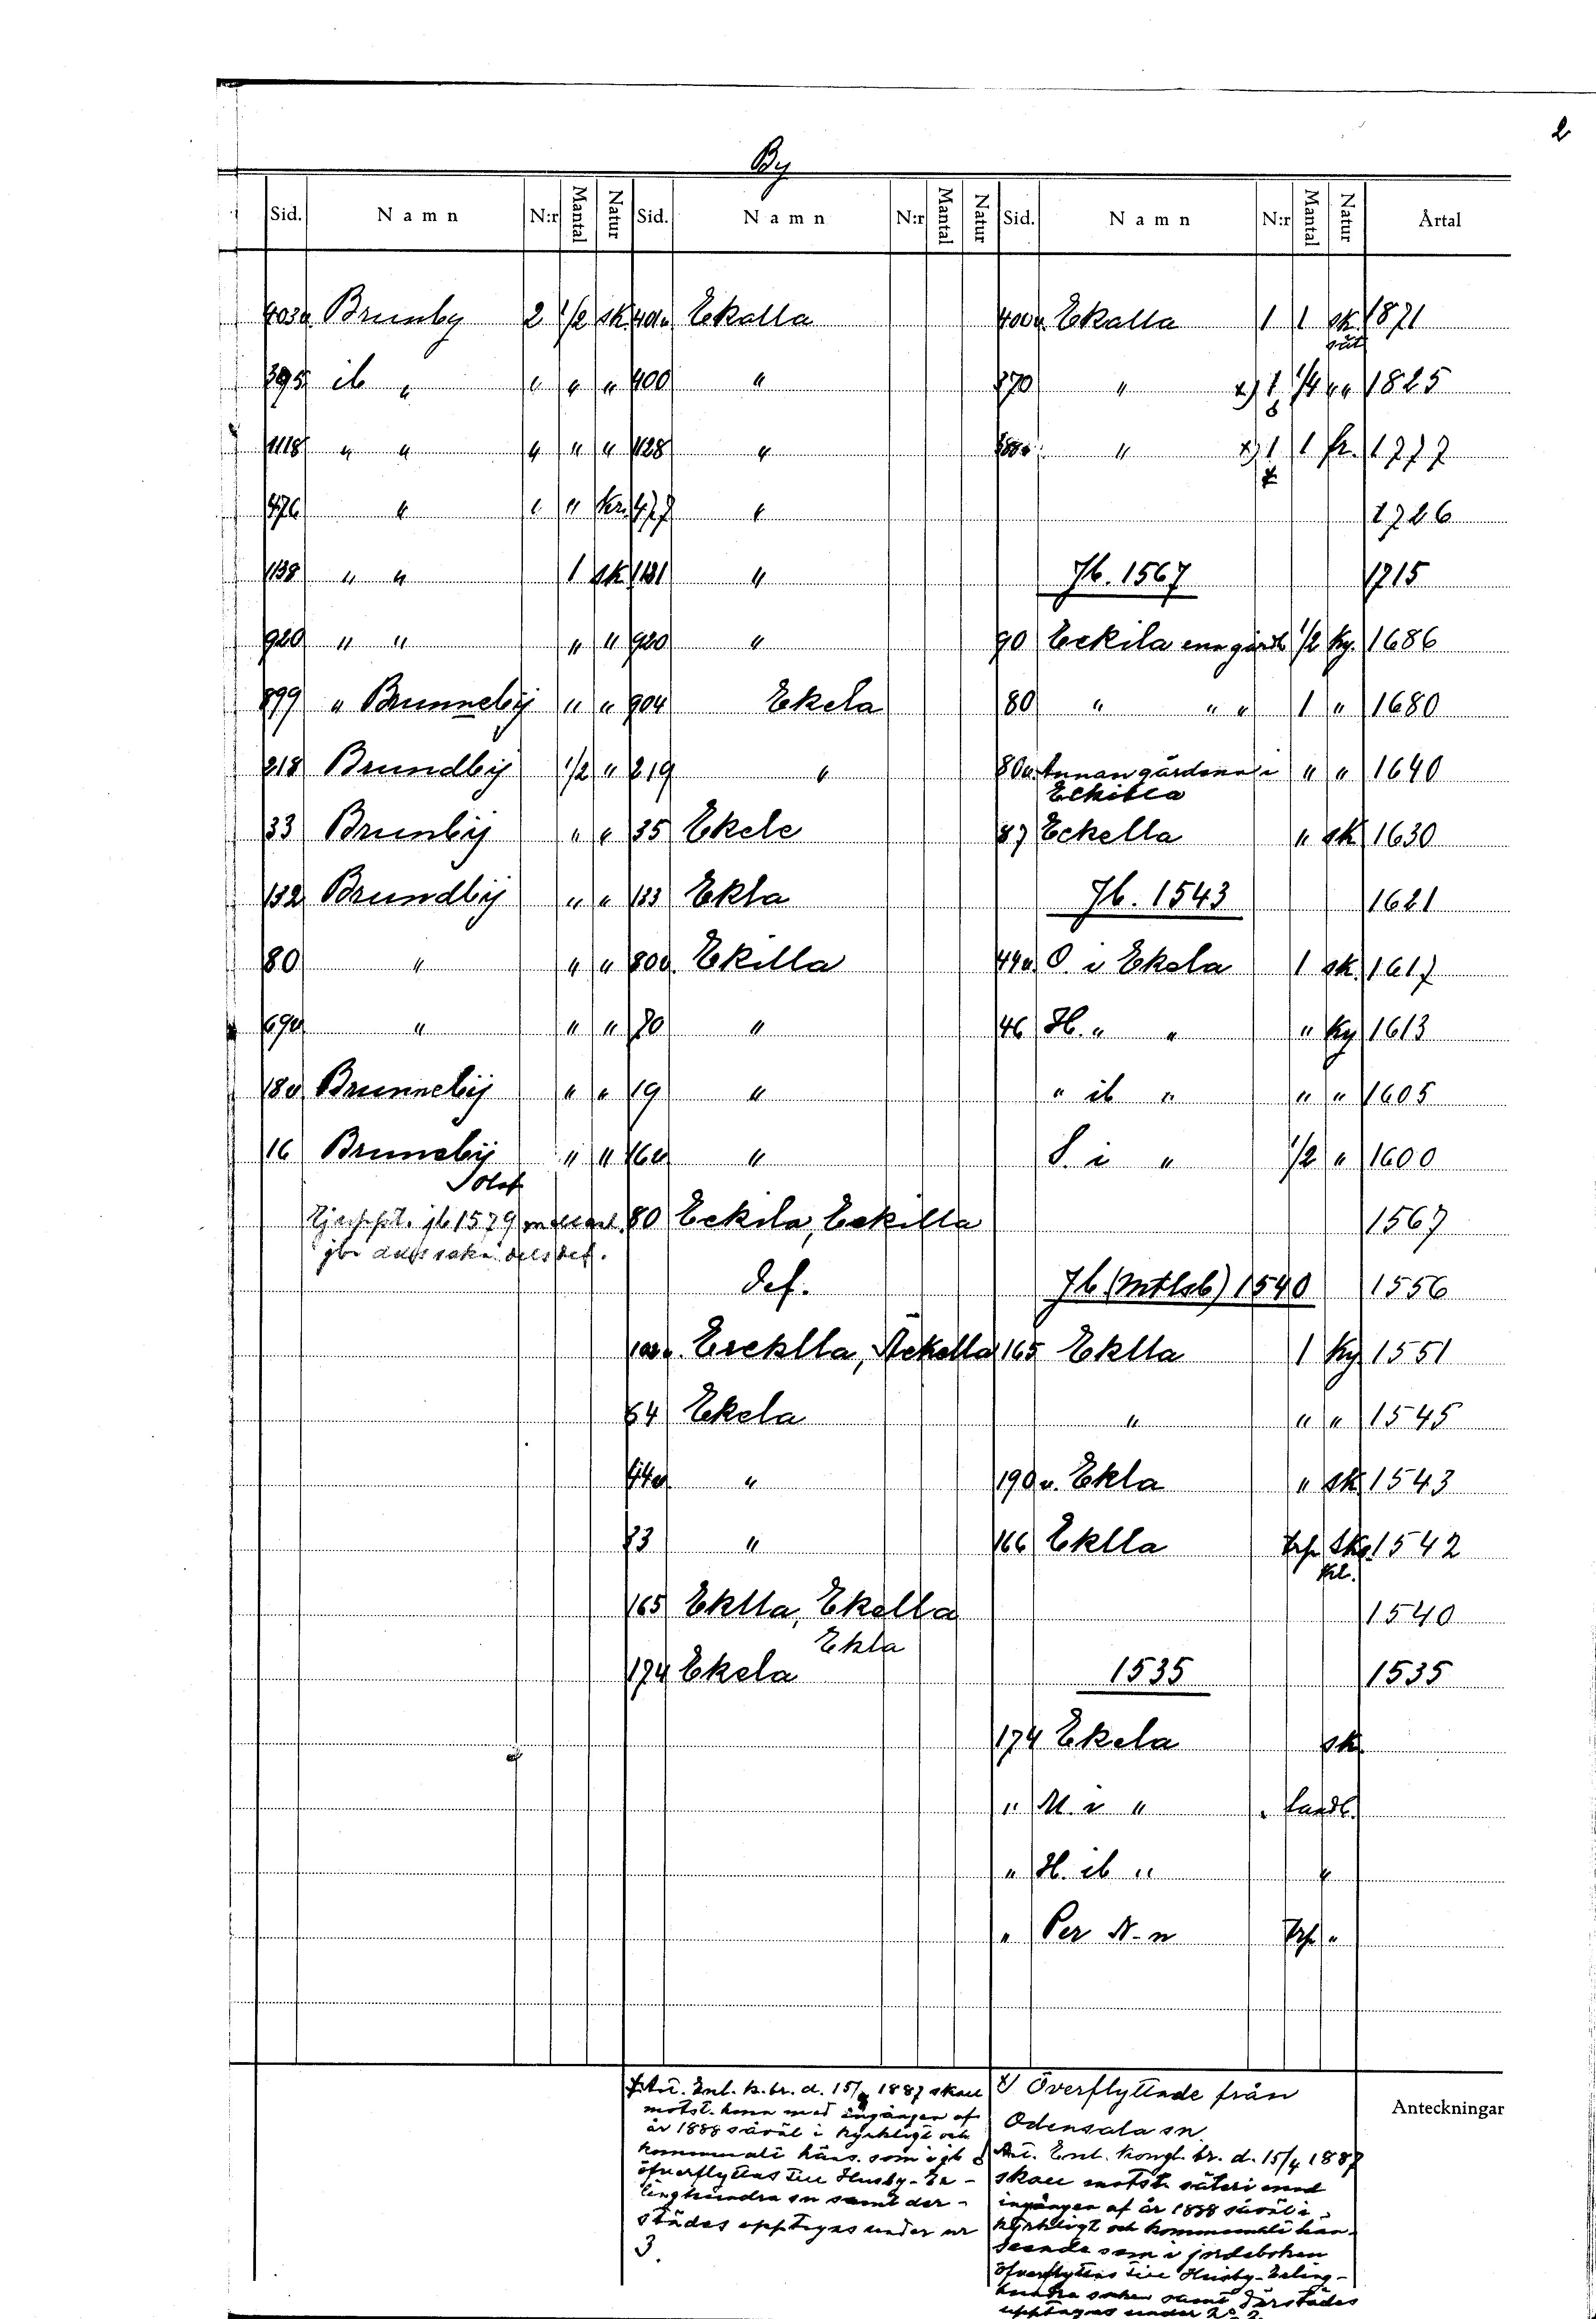 2
By
Sid. Namn N:r Mantal Natur Sid. Namn N:r Mantal Natur Sid. Namn N:r Mantal Natur Årtal
403v Brunby 2 1/2 sk 401v Ekalla 400v Ekalla 1 1 sk 1871
sät
395 ib " " " " 400 " 370 " x) 1 1/4 " " 1825
8
1118 " " " " " 1128 " " x) 1 1 fr. 1777
476 " " " kr. 477 " 1726
1138 " " 1 sk 1131 " Jb. 1567 1715
920 " " " " 920 " 90 Eckila enn gård 1/2 ky. 1686
899 " Brunneby " " 904 Ekela 80 " " " 1 " 1680
218 Brundby 1/2 " 219 " 80v Annan gården i " " 1640
Eckilla
33 Brunby " " 35 Ekele 87 Eckella " sk 1630
132 Brundby " " 133 Ekla Jb. 1543 1621
80 " " " 80v. Ekilla 44v O. i Ekela 1 sk. 1617
69v " " " 70 " 46 H. " " " ky 1613
18v Brunneby " " 19 " " ib " " " 1605
16 Bruneby " " 16v " S. i " 1/2 " 1600
jb 1579 80 Eckila, Eckilla 1567
Def. Jb (mtlsb) 1540 1556
Eecklla, Äckella 165 Eklla 1 ky 1551
64 Ekela " " " 1545
44v " 190v. Ekla " sk 1543
73 " 166 Eklla trp Sko 1542
kl.
165 Eklla, Ekella 1540
Ekla
174 Ekela 1535 1535
174 Ekela sk.
" M. i " " landb.
" H. ib " "
" Per N-n Trp "
Enl. k. br. d. 15/4 1887 skall
motst. hmn med ingången af
år 1888 såväl i kyrkligt och
kommunalt häns. som i jb
öfverflyttas till Husby-Er-
linghundra sn samt der-
städes upptagas under nr
3.
x) Överflyttade från
Odensala sn.
Enl. kongl. br. d. 15/4 1887
skall motst. säteri med
ingången af år 1888 såväl i
kyrkligt och kommunalt hän-
seende som i jordeboken
öfverflyttas till Husby-Erling-
hundra socken samt därstädes
upptagas under
Anteckningar